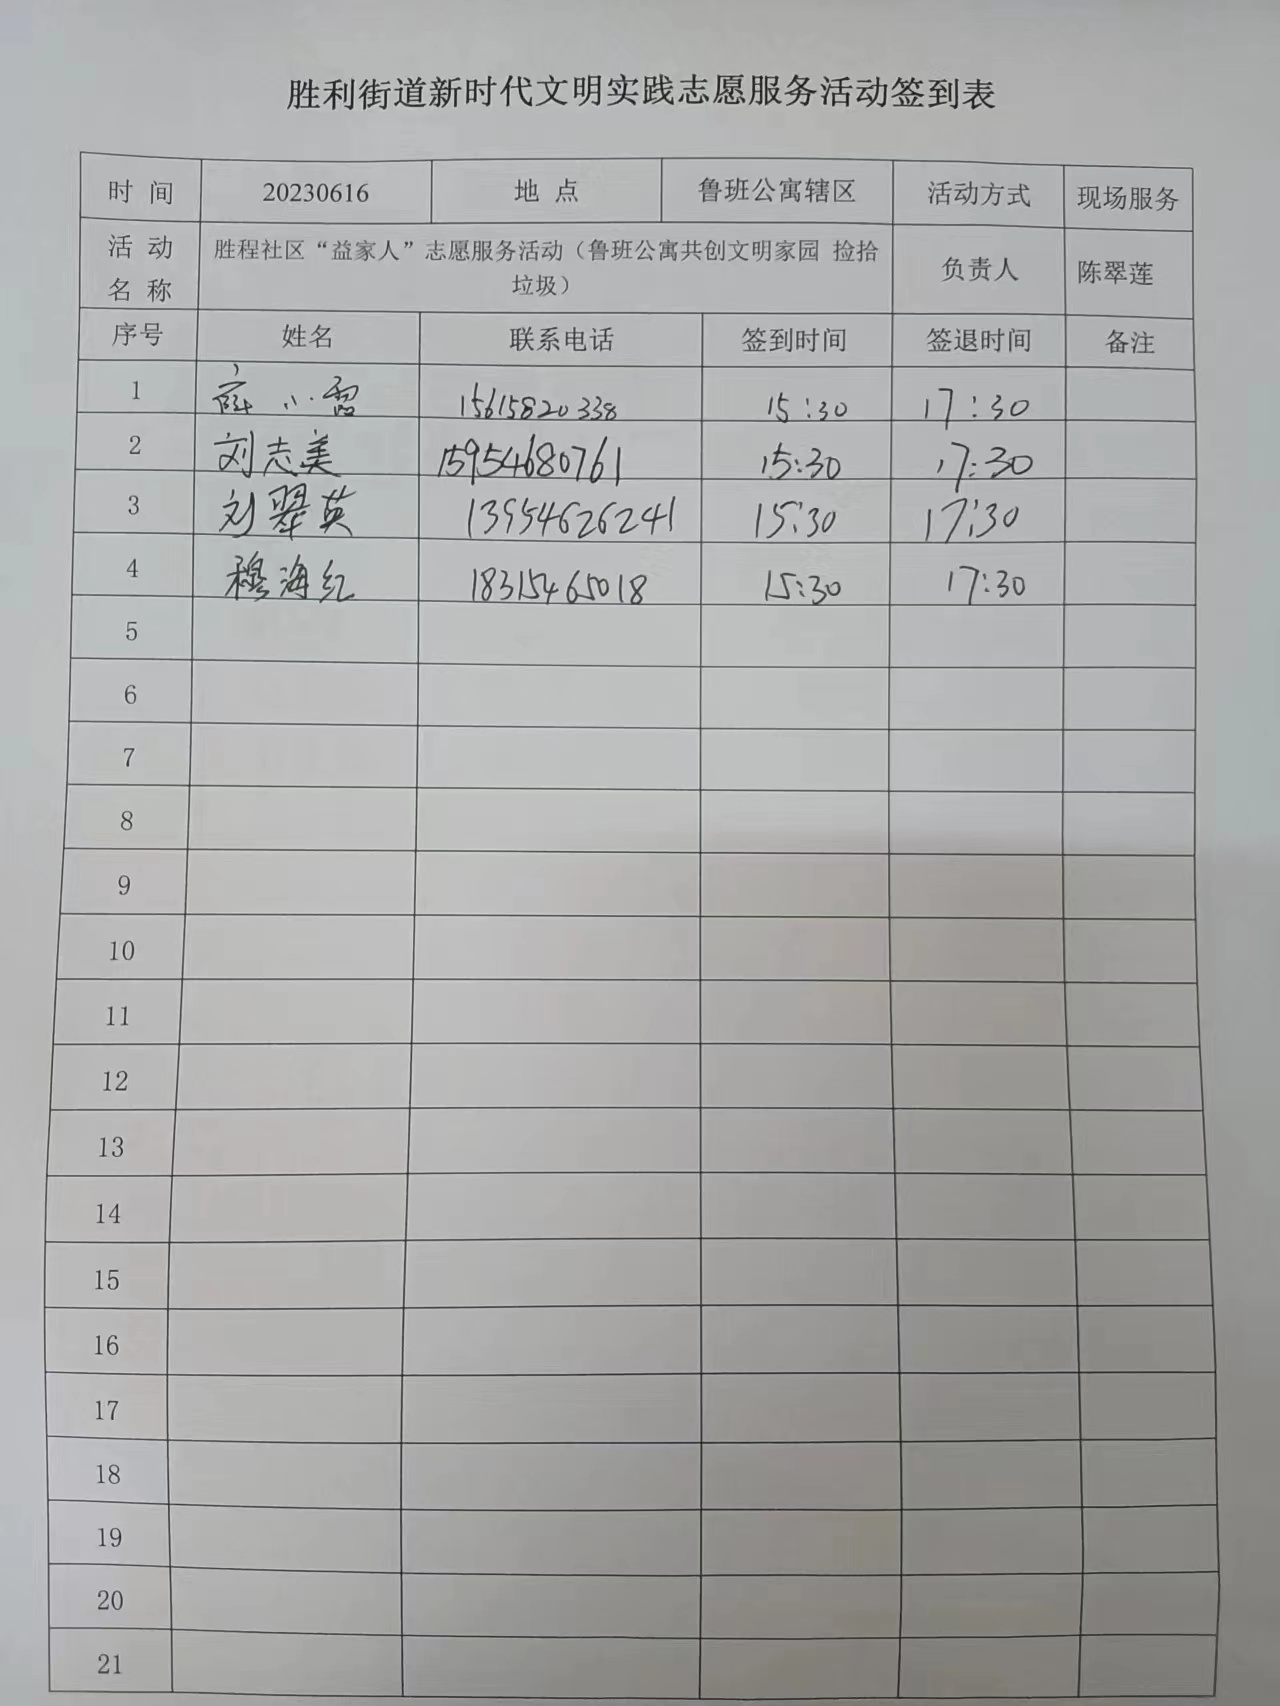 胜利街道新时代文明实践志愿服务活动签到表
时 间 20230616 地 点 鲁班公寓辖区 活动方式 现场服务
活 动 名 称 胜程社区“益家人”志愿服务活动（鲁班公寓共创文明家园 捡拾
垃圾） 负责人 陈翠莲
序号 姓名 联系电话 签到时间 签退时间 备注
1 小 15615820338 15:30 17:30
2 刘志美 15954680761 15:30 17:30
3 刘翠英 13954626241 15:30 17:30
4 穆海红 18315465018 15:30 17:30
5
6
7
8
9
10
11
12
13
14
15
16
17
18
19
20
21